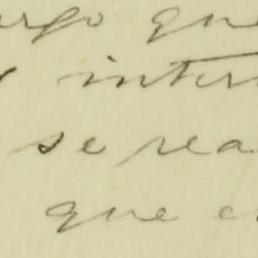 argo que
inter
se rea
que e